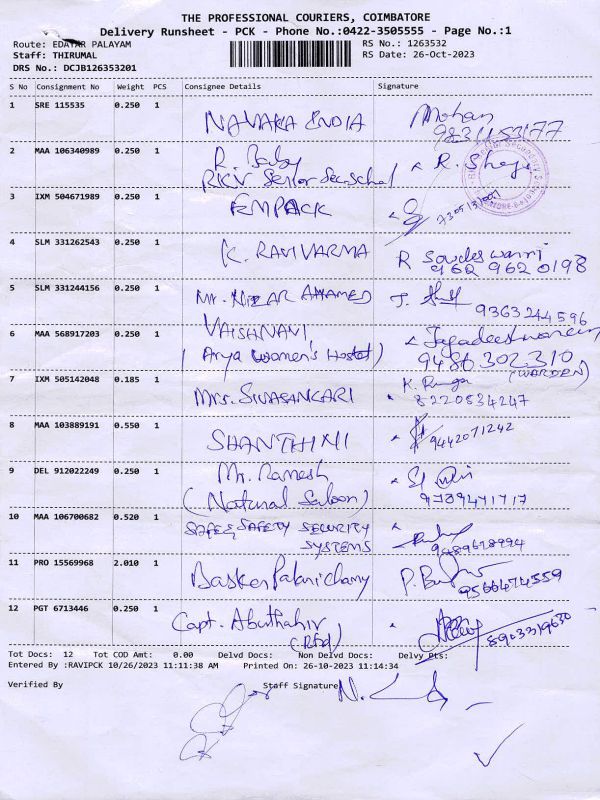 THE PROFESSIONAL COURIERS, COIMBATORE
Delivery Runsheet - PCK - Phone No.:0422-3505555 - Page No.:1
Route: EDAYAR PALAYAM RS No.: 1263532
Staff: THIRUMAL RS Date: 26-Oct-2023
DRS No.: DCJB126353201
S No Consignment No Weight PCS Consignee Details Signature
1 SRE 115535 0.250 1 NAVARA INDIA Mohan
2 MAA 106340989 0.250 1 R. Baby R. Shaji
RKV Senior
3 IXM 504671989 0.250 1 EMPACK
4 SLM 331262543 0.250 1 K. RAVIVARMA R
962 962 0198
5 SLM 331244156 0.250 1 Mr. NIZAR AHAMED J.
9363244596
6 MAA 568917203 0.250 1 VAISHNAVI
(Arya Women's Hostel) 9486302310
(WARDEN)
7 IXM 505142048 0.185 1 Mrs. SIVASANKARI K. Renga
8220534247
8 MAA 103889191 0.550 1 SHANTHINI 9442071242
9 DEL 912022249 0.250 1 Mr. Ramesh
(Natural Saloon)
10 MAA 106700682 0.520 1 SAFE SAFETY SECURITY
SYSTEMS 9489678994
11 PRO 15569968 2.010 1 Basker Palanichamy P.
9566474559
12 PGT 6713446 0.250 1 Capt. Abuthahir
(Rtd)
Tot Docs: 12 Tot COD Amt: 0.00 Delvd Docs: Non Delvd Docs: Delvy Pts:
Entered By :RAVIPCK 10/26/2023 11:11:38 AM Printed On: 26-10-2023 11:14:34
Verified By Staff Signature